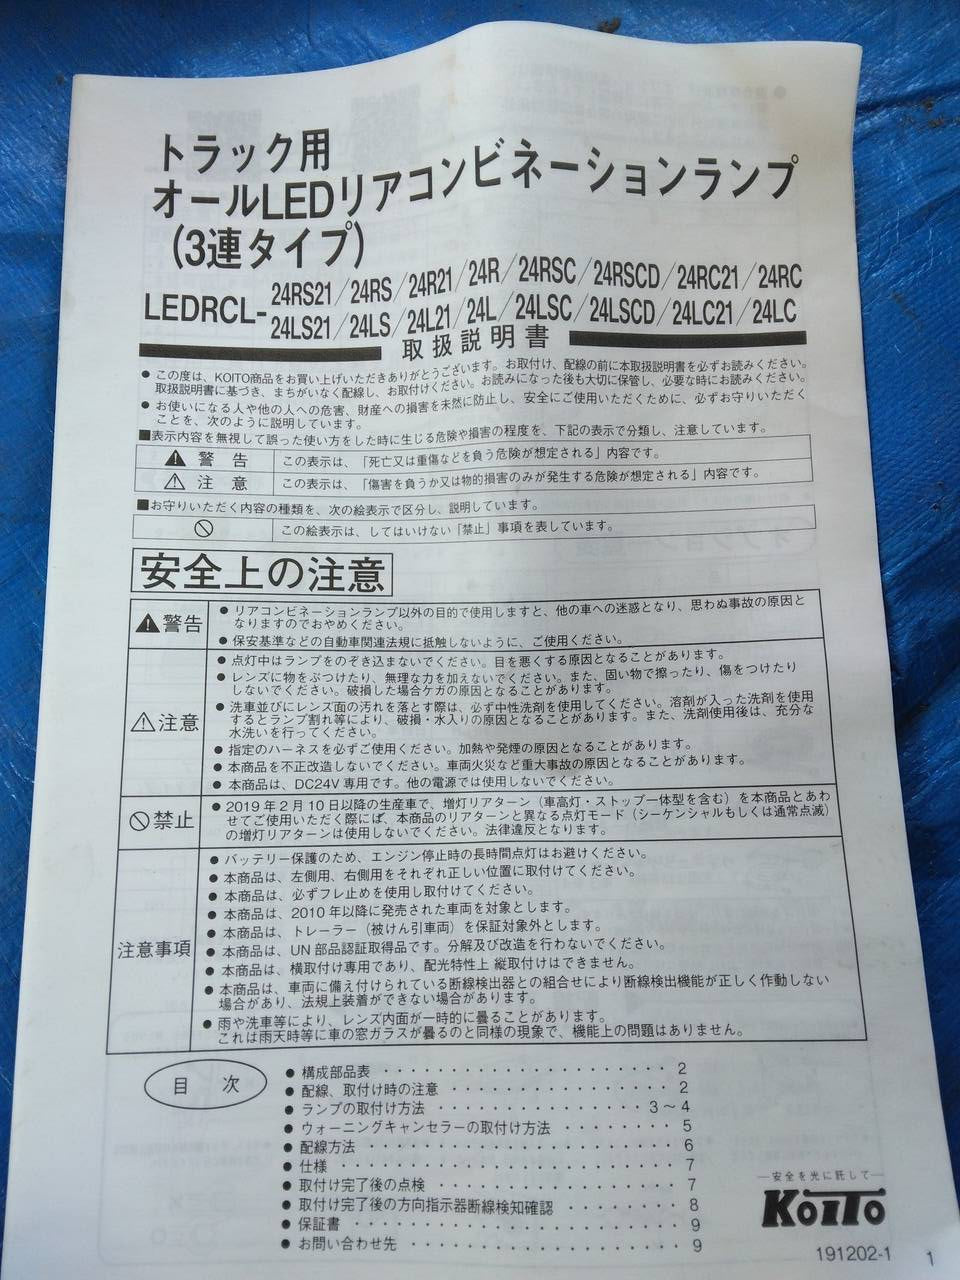 トラック用
オールLEDリアコンビネーションランプ
(3連タイプ)
LEDRCL-
24RS21/24RS/24R21/24R/24RSC/24RSCD/24RC21/24RC
24LS21/24LS/24L21/24L/24LSC/24LSCD/24LC21/24LC
取扱説明書
● この度は、KOITO商品をお買い上げいただきありがとうございます。お取付け、配線の前に本取扱説明書を必ずお読みください。
取扱説明書に基づき、まちがいなく配線し、お取付けください。お読みになった後も大切に保管し、必要な時にお読みください。
● お使いになる人や他の人への危害、財産への損害を未然に防止し、安全にご使用いただくために、必ずお守りいただく
ことを、次のように説明しています。
■表示内容を無視して誤った使い方をした時に生じる危険や損害の程度を、下記の表示で分類し、注意しています。
⚠ 警 告 この表示は、「死亡又は重傷などを負う危険が想定される」内容です。
⚠ 注 意 この表示は、「傷害を負うか又は物的損害のみが発生する危険が想定される」内容です。
■お守りいただく内容の種類を、次の絵表示で区分し、説明しています。
この絵表示は、してはいけない「禁止」事項を表しています。
安全上の注意
⚠警告
● リアコンビネーションランプ以外の目的で使用しますと、他の車への迷惑となり、思わぬ事故の原因と
なりますのでおやめください。
● 保安基準などの自動車関連法規に抵触しないように、ご使用ください。
⚠注意
● 点灯中はランプをのぞき込まないでください。目を悪くする原因となることがあります。
● レンズに物をぶつけたり、無理な力を加えないでください。また、固い物で擦ったり、傷をつけたり
しないでください。破損した場合ケガの原因となることがあります。
● 洗車並びにレンズ面の汚れを落とす際は、必ず中性洗剤を使用してください。溶剤が入った洗剤を使用
するとランプ割れ等により、破損・水入りの原因となることがあります。また、洗剤使用後は、充分な
水洗いを行ってください。
● 指定のハーネスを必ずご使用ください。加熱や発煙の原因となることがあります。
● 本商品を不正改造しないでください。車両火災など重大事故の原因となることがあります。
● 本商品は、DC24V専用です。他の電源では使用しないでください。
禁止
● 2019年2月10日以降の生産車で、増灯リアターン(車高灯・ストップ一体型を含む)を本商品とあわ
せてご使用いただく際には、本商品のリアターンと異なる点灯モード(シーケンシャルもしくは通常点滅)
の増灯リアターンは使用しないでください。法律違反となります。
注意事項
● バッテリー保護のため、エンジン停止時の長時間点灯はお避けください。
● 本商品は、左側用、右側用をそれぞれ正しい位置に取付けてください。
● 本商品は、必ずフレ止めを使用し取付けてください。
● 本商品は、2010年以降に発売された車両を対象とします。
● 本商品は、トレーラー(被けん引車両)を保証対象外とします。
● 本商品は、UN部品認証取得品です。分解及び改造を行わないでください。
● 本商品は、横取付け専用であり、配光特性上 縦取付けはできません。
● 本商品は、車両に備え付けられている断線検出器との組合せにより断線検出機能が正しく作動しない
場合があり、法規上装着ができない場合があります。
● 雨や洗車等により、レンズ内面が一時的に曇ることがあります。
これは雨天時等に車の窓ガラスが曇るのと同様の現象で、機能上の問題はありません。
目 次
● 構成部品表 ・・・・・・・・・・・・・・・・・・・ 2
● 配線、取付け時の注意 ・・・・・・・・・・・・・・ 2
● ランプの取付け方法 ・・・・・・・・・・・・・ 3～4
● ウォーニングキャンセラーの取付け方法 ・・・・・・・ 5
● 配線方法 ・・・・・・・・・・・・・・・・・・・・ 6
● 仕様 ・・・・・・・・・・・・・・・・・・・・・・ 7
● 取付け完了後の点検 ・・・・・・・・・・・・・・・ 7
● 取付け完了後の方向指示器断線検知確認 ・・・・・・・ 8
● 保証書 ・・・・・・・・・・・・・・・・・・・・・ 9
● お問い合わせ先 ・・・・・・・・・・・・・・・・・ 9
―安全を光に託して―
KOITO
191202-1
1